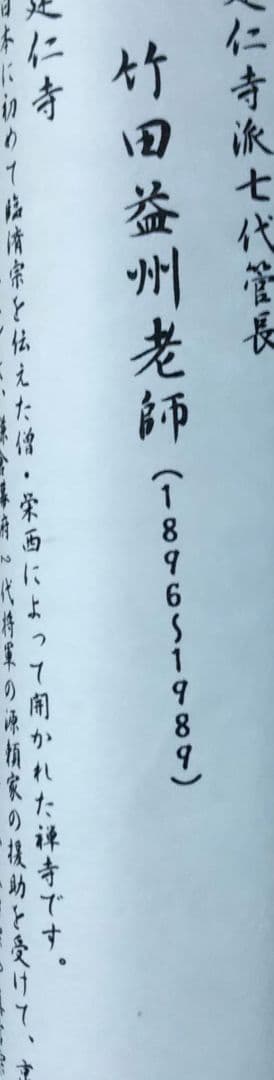 建仁寺派七代管長
竹田益州老師(1896~1989)
建仁寺
日本に初めて臨済宗を伝えた僧・栄西によって開かれた禅寺です。
鎌倉幕府二代将軍の源頼家の援助を受けて、京